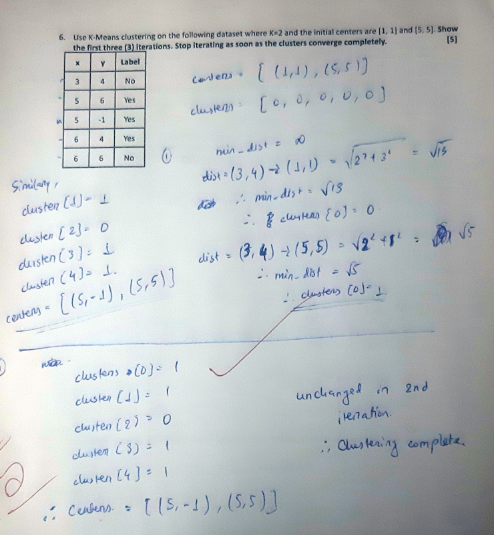 6. Use K-Means clustering on the following dataset where K=2 and the initial centers are [1, 1] and [5, 5]. Show
the first three (3) iterations. Stop iterating as soon as the clusters converge completely. [5]
x y Label
3 4 No
5 6 Yes
5 -1 Yes
6 4 Yes
6 6 No
centers = [ (1,1) , (5,5) ]
clusters = [ 0, 0, 0, 0, 0 ]
①
min-dist = ∞
dist = (3,4) → (1,1) = √2²+3² = √13
∴ min-dist = √13
∴ clusters [0] = 0
dist = (3,4) → (5,5) = √2²+1² = √5
∴ min-dist = √5
∴ clusters [0] = 1
Similarly,
cluster [1] = 1
cluster [2] = 0
cluster [3] = 1
cluster [4] = 1.
centers = [(5,-1) , (5,5)]
clusters [0] = 1
cluster [1] = 1
cluster [2] = 0
cluster [3] = 1
cluster [4] = 1
∴ Centers = [(5,-1) , (5,5)]
unchanged in 2nd
iteration.
∴ Clustering complete.